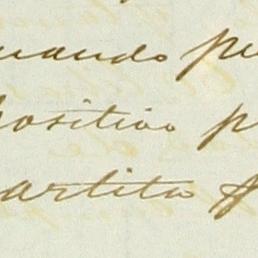 uando pe
positivo p
artito